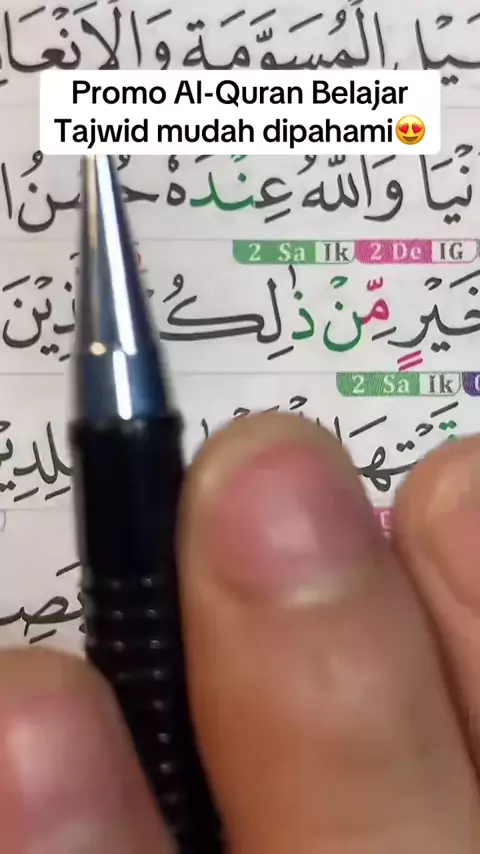 ـيْلِ الْمُسَوَّمَةِ وَالْاَنْعَا
Promo Al-Quran Belajar
Tajwid mudah dipahami😍
نْيَا وَاللّٰهُ عِنْدَهٗ حُسْنُ ا
2 Sa Ik 2 De IG
خَيْرٍ مِّنْ ذٰلِكُ ذِيْنَ
2 Sa Ik